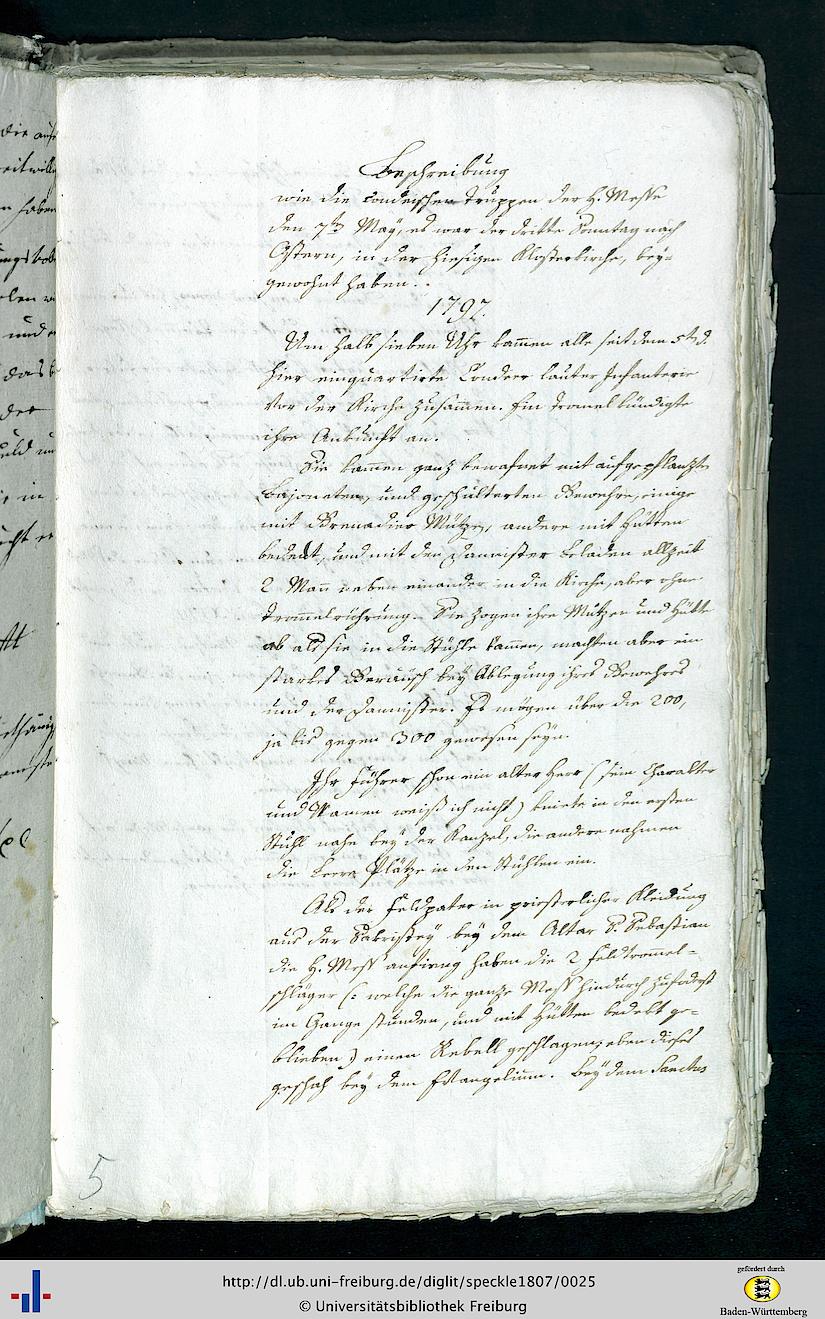 Beschreibung
wie die Condeischen Truppen der H. Messe
den 7ten May, es war der dritte Sonntag nach
Ostern, in der hiesigen Klosterkirche, bey=
gewohnt haben.
1797.
Um halb sieben Uhr kammen alle seit dem 5ten d.
hier einquartirte Condeer lauter Infanterie
vor der Kirche zusammen. Ein Tromel kündigte
ihre Ankunft an.
Sie kammen ganz bewafnet mit aufgepflanzten
Bajoneten, und geschulterten Gewehre, einige
mit Grenadier Mützen, andere mit Hütten
bedeckt, und mit den Tannister beladen allzeit
2 Mann neben einander in die Kirche, aber ohne
Trommelrührung. Sie zogen ihre Mützen und Hütte
ab als sie in die Stühle kammen, machten aber ein
starkes Geräusch bey Ablegung ihres Gewehres
und der Tannister. Es mögen über die 200,
ja bis gegen 300 gewesen seyn.
Ihr Führer schon ein alter Herr (sein Charakter
und Namen weiß ich nicht) kniete in den ersten
Stuhl nahe bey der Kanzel, die andere nahmen
die leere Plätze in den Stühlen ein.
Als der Feldpater in priesterlicher Kleidung
aus der Sakristey bey dem Altar S. Sebastian
die H. Mess anfieng haben die 2 Feldtrommel=
schläger (: welche die ganze Mess hindurch zuforderst
im Gange stunden, und mit Hütten bedekt ge=
blieben) einen Rebell geschlagen; eben dieses
geschah bey dem Evangelium. Bey dem Sanctus
5
http://dl.ub.uni-freiburg.de/diglit/speckle1807/0025
© Universitätsbibliothek Freiburg
gefördert durch
Baden-Württemberg